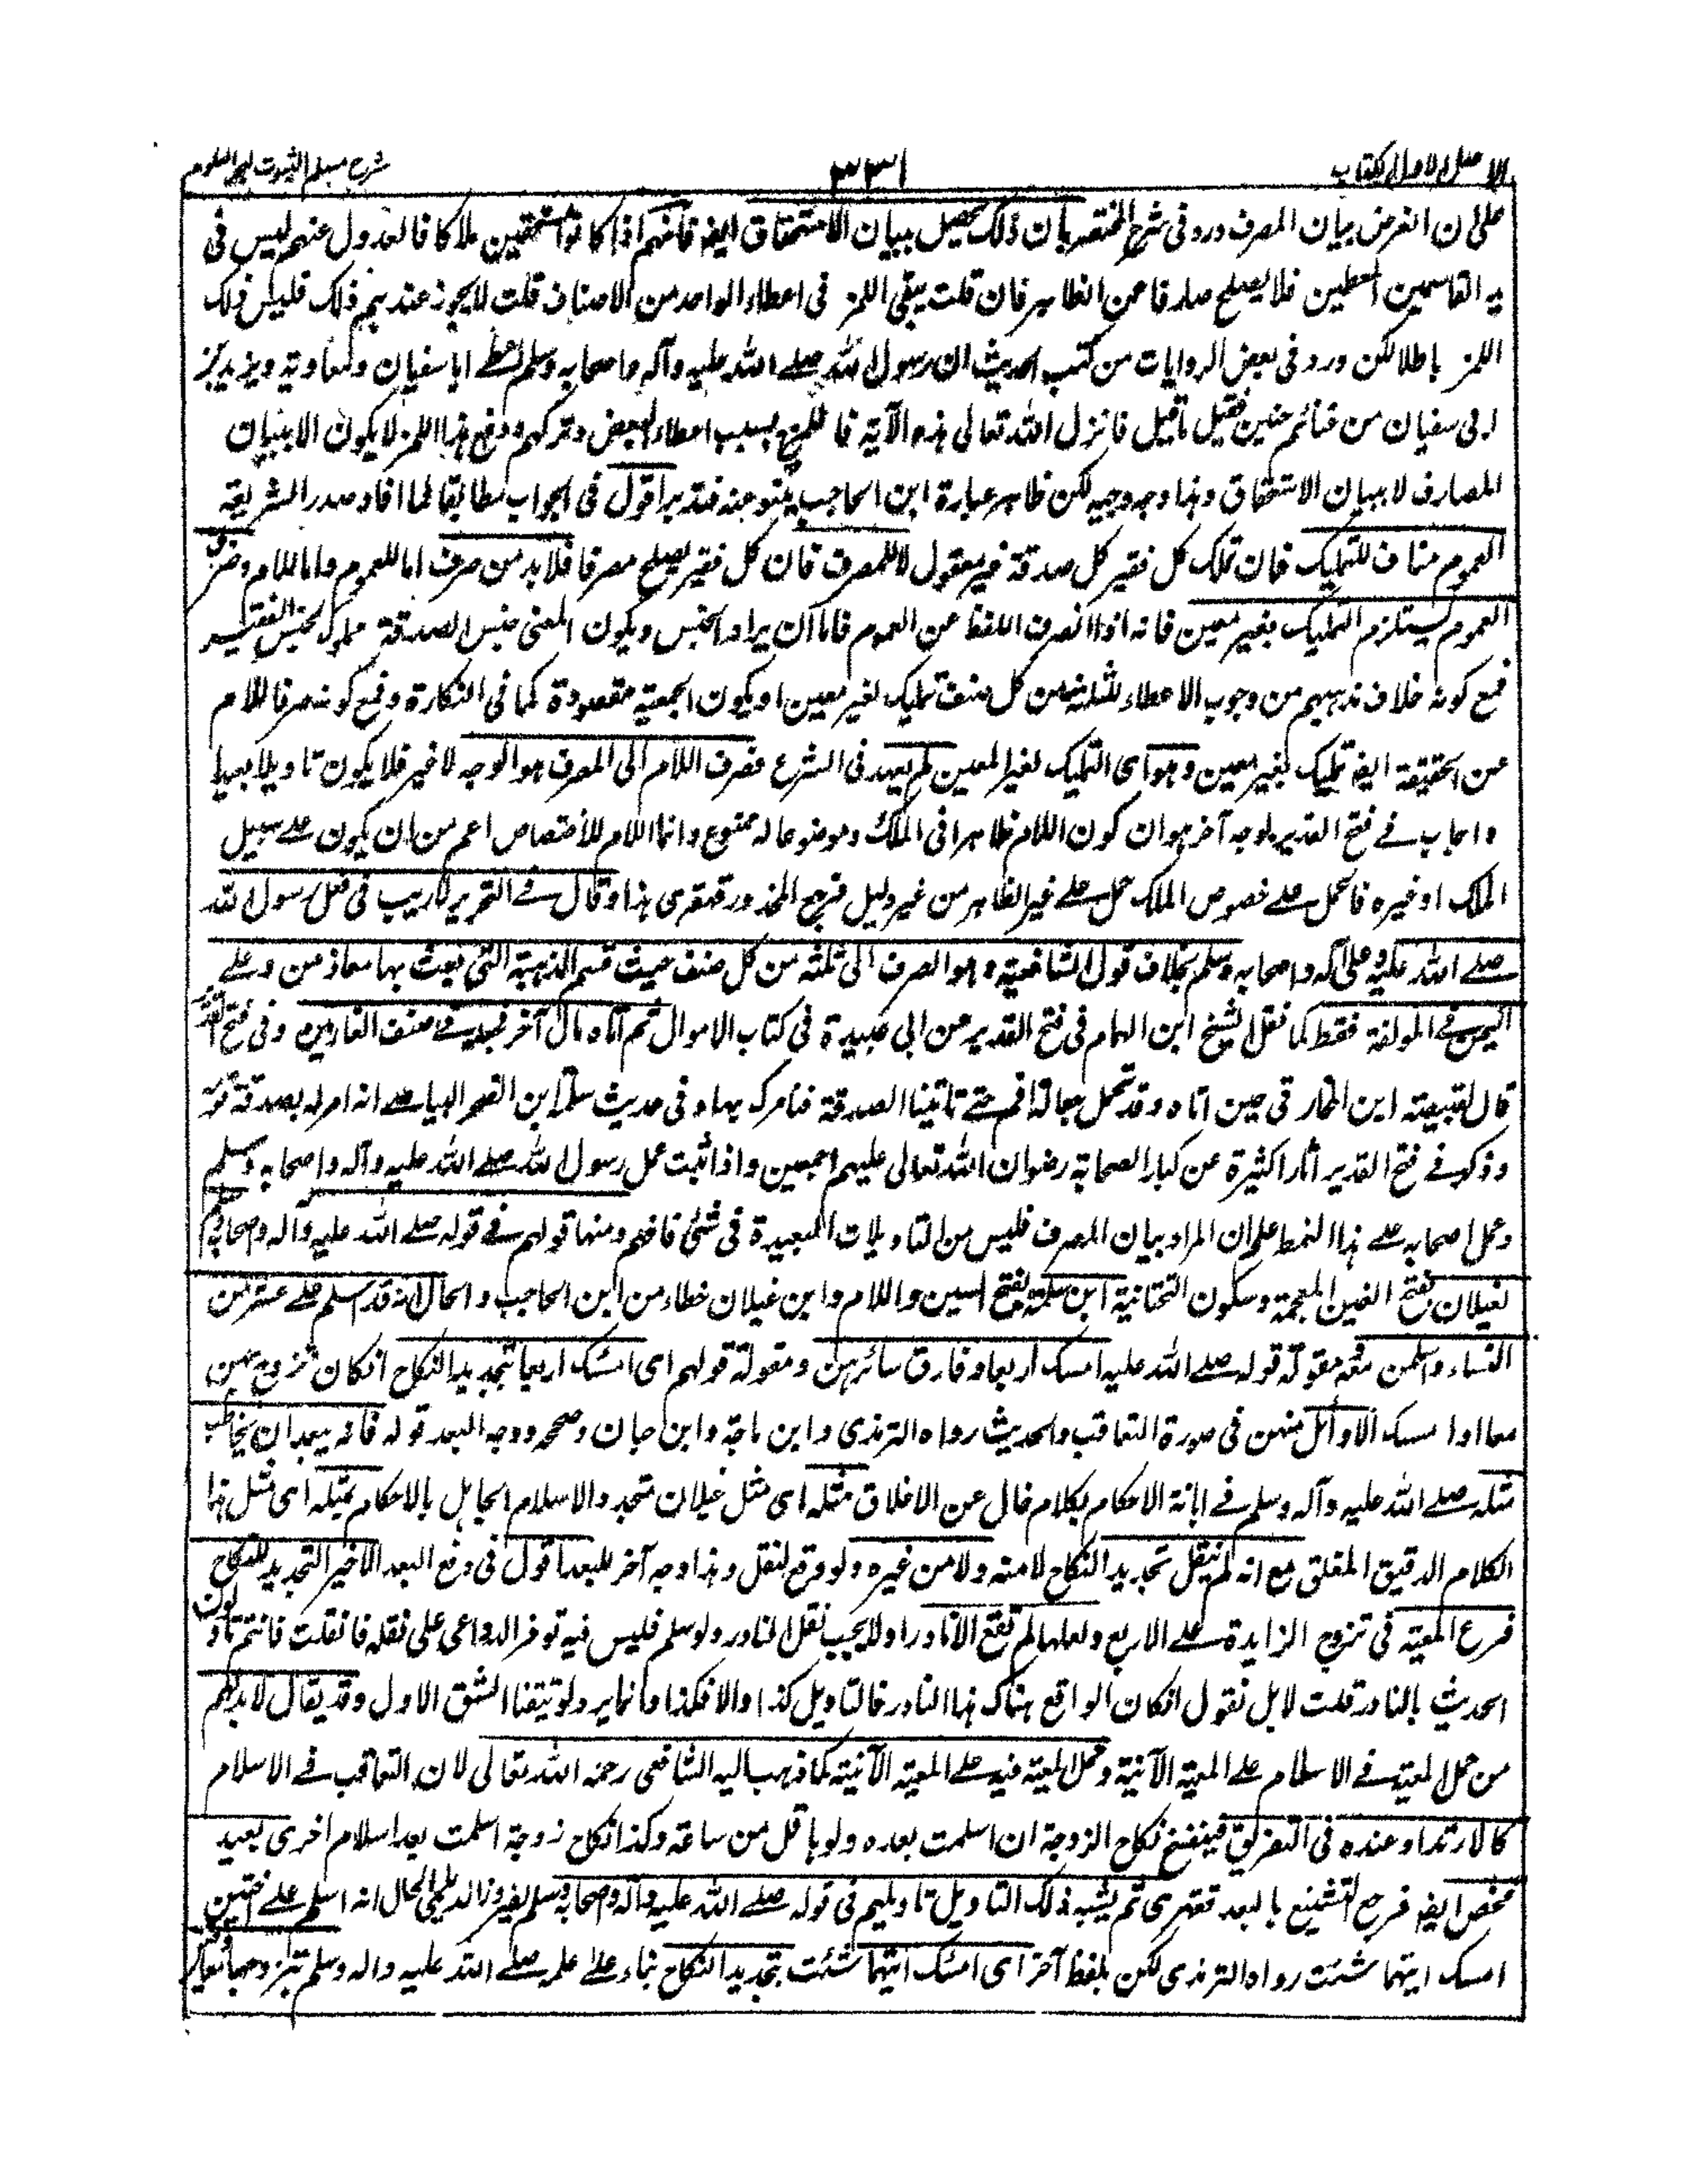 الاصل الاول الكتاب
٣٣١
شرح مسلم الثبوت لبحر العلوم
على ان الغرض بيان المصرف ورد فى شرح المختصر بان ذلك يحصل ببيان الاستحقاق ايضا فانهم اذا كانوا مستحقين ملاكا فالعدول عنهم ليس فى
يد القاسمين المعطين فلا يصلح صارفا عن الظاهر فان قلت يبقى اللمز فى اعطاء الواحد من الاصناف قلت لا يجوز عندهم ذلك فليس ذلك
اللمز باطلا لكن ورد فى بعض الروايات من كتب الحديث ان رسول الله صلے الله عليه وآله واصحابه وسلم اعطے ابا سفيان ومعاوية ويزيد بن
ابى سفيان من غنائم حنين فقيل ما قيل فانزل الله تعالى هذه الآية فاللمز بسبب اعطاء البعض وتركهم ودفع هذا اللمز لا يكون الا ببيان
المصارف لا ببيان الاستحقاق وهذا وجه وجيه لكن ظاهر عبارة ابن الحاجب ينبو عنه فتدبر اقول فى الجواب مطابقا لما افاد صدر الشريعة
العموم مناف للتمليك فان تملك كل فقير كل صدقة غير معقول لا للمصرف فان كل فقير يصلح مصرفا فلا بد من صرف اما للعموم واما للام وصرف
العموم يستلزم التمليك بغير معين فانه اذا انصرف اللفظ عن العموم فاما ان يراد الجنس ويكون المعنى جنس الصدقة مملوك لجنس الفقير
فمع كونه خلاف مذهبهم من وجوب الاعطاء لثلثة من كل صنف تمليك لغير معين او يكون الجمعية مقصودة كما فى النكارة وفمع كونه صرفا للام
عن الحقيقة ايضا تمليك لغير معين وهو اى التمليك لغير المعين لم يعهد فى الشرع فصرف اللام الى المصرف هو الوجه لا غير فلا يكون تاويلا بعيدا
واجاب فے فتح القدير بوجه آخر هو ان كون اللام ظاهرا فى الملك وموضوعا له ممنوع وانما اللام للاختصاص اعم من ان يكون علے سبيل
الملك او غيره فالحمل علے خصوص الملك حمل علے غير الظاهر من غير دليل فرجع المحذور قهقرى هذا وقال فے التحرير لا ريب فى فعل رسول الله
صلے الله عليه وعلى آله واصحابه وسلم بخلاف قول الشافعية وهو الصرف الى ثلثة من كل صنف حيث قسم الذهبية التى بعث بها معاذ من وعلے
اليمن فے المولفة فقط كما نقل الشيخ ابن الهمام فى فتح القدير عن ابى عبيدة فى كتاب الاموال ثم اتاه مال آخر فجعله فے صنف الغارمين وفى فتح القدير
قال لقبيصة ابن المخارقى حين اتاه وقد تحمل حمالة اقم حتے تاتينا الصدقة فنامرك بها وفى حديث سلمة ابن الصخر البياضے انه امر له بصدقة قومه
وذكر فے فتح القدير آثارا كثيرة عن كبار الصحابة رضوان الله تعالى عليهم اجمعين واذا ثبت عمل رسول الله صلے الله عليه وآله واصحابه وسلم
وعمل اصحابه علے هذا النمط علم ان المراد بيان المصرف فليس من التاويلات البعيدة فى شئ فافهم ومنها قولهم فے قوله صلے الله عليه وآله واصحابه وسلم
لغيلان بفتح الغين المعجمة وسكون التحتانية ابن سلمة بفتح السين واللام وابن غيلان خطاء من ابن الحاجب والحال انه قد اسلم علے عشر من
النساء واسلمن معه مقولة قوله صلے الله عليه امسك اربعا وفارق سائرهن ومقولة قولهم اى امسك اربعا بتجديد النكاح انكان تزوج بهن
معا او امسك الاوائل منهن فى صورة التعاقب والحديث رواه الترمذى وابن ماجة وابن حبان وصححه ووجه البعد قوله فانه يبعد ان يخاطب
مثله صلے الله عليه وآله وسلم فے ابانة الاحكام بكلام خال عن الاغلاق مثله اى مثل غيلان متجدد الاسلام الجاهل بالاحكام بمثله اى مثل هذا
الكلام الدقيق المغلق مع انه لم ينقل تجديد النكاح لا منه ولا من غيره ولو وقع لنقل وهذا وجه آخر للبعد اقول فى دفع البعد الاخير التجديد للنكاح
فرع المعية فى تزوج الزايدة علے الاربع ولعلها لم تقع الا نادرا ولا يجب نقل النادر ولو سلم فليس فيه توفر الدواعى على نقله فان قلت فانتم تاولون
الحديث بالنادر قلت لا بل نقول انكان الواقع هناك هذا النادر فالتاويل كذا والا فكذا وانما يرد لو تيقنا الشق الاول وقد يقال لا بد لهم
من حمل المعية فے الاسلام علے المعية الآنية وحمل المعية فيه علے المعية الآنية كما ذهب اليه الشافعى رحمه الله تعالى لان التعاقب فے الاسلام
كالارتداد عنده فى التفريق فينفسخ نكاح الزوجة ان اسلمت بعده ولو باقل من ساعة وكذا نكاح زوجة اسلمت بعد اسلام اخرى بعيد
محض ايضا فرجع التشنيع بالبعد قهقرى ثم يشبه ذلك التاويل تاويلهم فى قوله صلے الله عليه وآله واصحابه وسلم لفيروز الديلمى والحال انه اسلم علے اختين
امسك ايتهما شئت رواه الترمذى لكن بلفظ آخر اى امسك ايتهما شئت بتجديد النكاح بناء علے علمه صلے الله عليه واله وسلم بتزوجهما معا